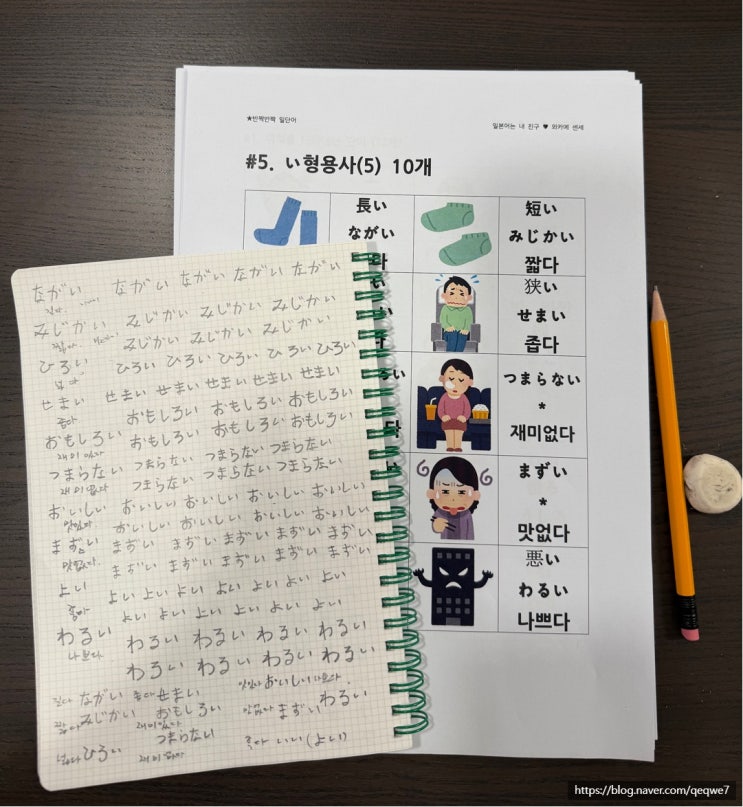 ★반짝반짝 일단어
일본어는 내 친구 ♥ 와카메 센세
#5. い형용사(5) 10개
長い
ながい
短い
みじかい
짧다
狭い
せまい
좁다
つまらない
*
재미없다
まずい
*
맛없다
悪い
わるい
나쁘다
ながい ながい ながい ながい ながい
みじかい みじかい みじかい みじかい
짧다 みじかい みじかい みじかい
ひろい ひろい ひろい ひろい ひろい ひろい
せまい せまい せまい せまい せまい せまい
좁다 おもしろい おもしろい おもしろい
おもしろい おもしろい おもしろい おもしろい
재미있다
つまらない つまらない つまらない つまらない
재미없다 つまらない つまらない つまらない
おいしい おいしい おいしい おいしい おいしい
맛있다 おいしい おいしい おいしい おいしい
まずい まずい まずい まずい まずい まずい
맛없다 まずい まずい まずい まずい まずい
よい よい よい よい よい よい よい よい
よい よい よい よい よい よい
わるい わるい わるい わるい わるい
나쁘다 わるい わるい わるい わるい
길다 ながい 좁다 せまい 맛있다 おいしい 나쁘다
짧다 みじかい おもしろい 맛없다 まずい わるい
재미있다
넓다 ひろい つまらない いい(よい)
재미없다
https://blog.naver.com/qeqwe7